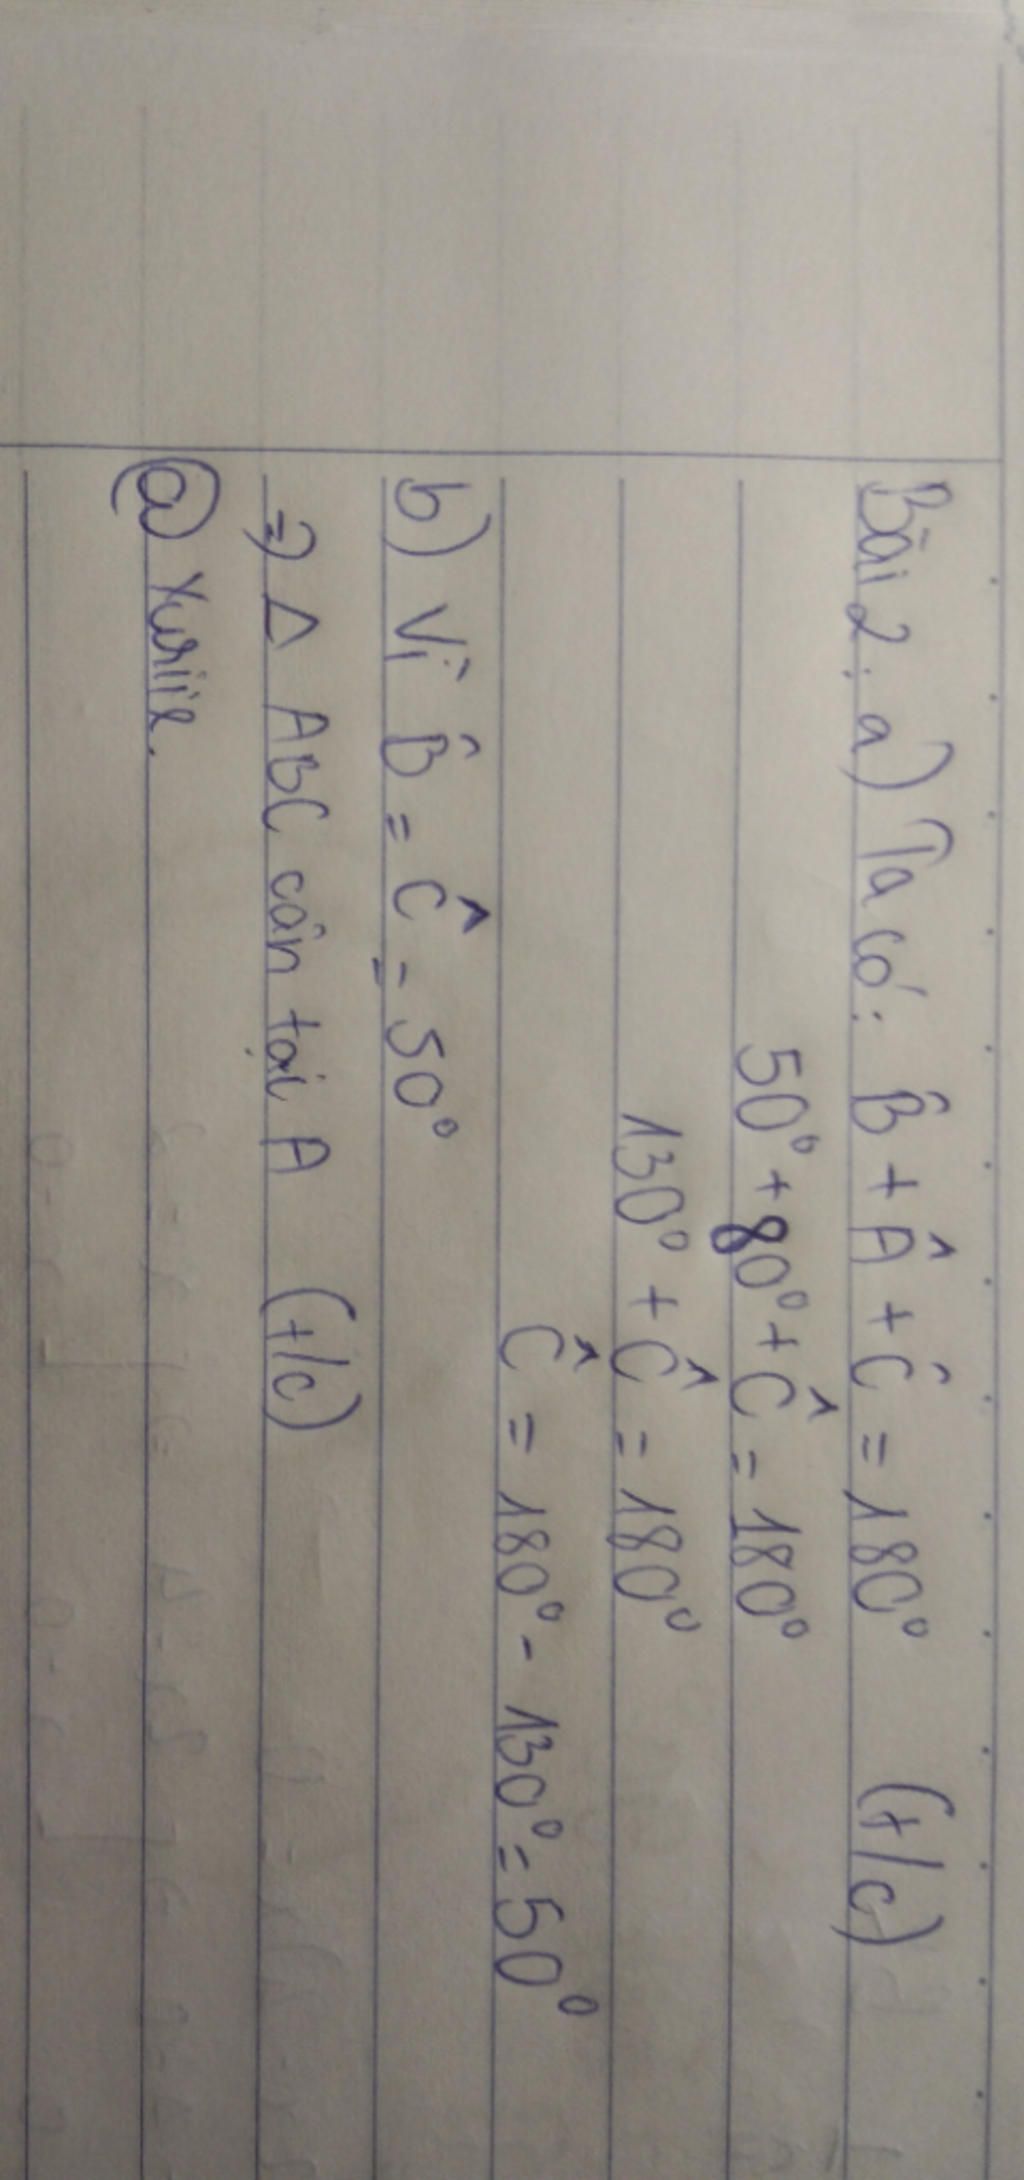 Bài 2: a) Ta có: B̂ + Â + Ĉ = 180° (t/c)
50° + 80° + Ĉ = 180°
130° + Ĉ = 180°
Ĉ = 180° - 130° = 50°
b) Vì B̂ = Ĉ = 50°
=) Δ ABC cân tại A (t/c)